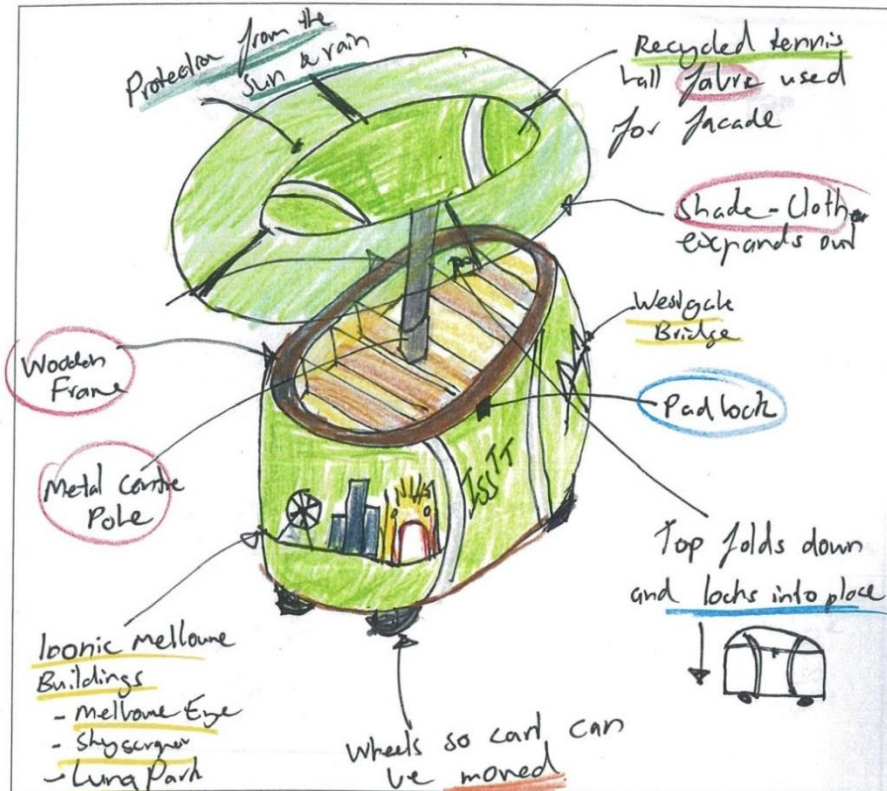 Protection from the
sun & rain
Recycled tennis
ball fabric used
for facade
Shade-Cloth
expands out
Westgate
Bridge
Wooden
Frame
Padlock
Metal Centre
Pole
Top folds down
and locks into place
Iconic Melbourne
Buildings
- Melbourne Eye
- Skyscraper
- Luna Park
Wheels so cart can
be moved